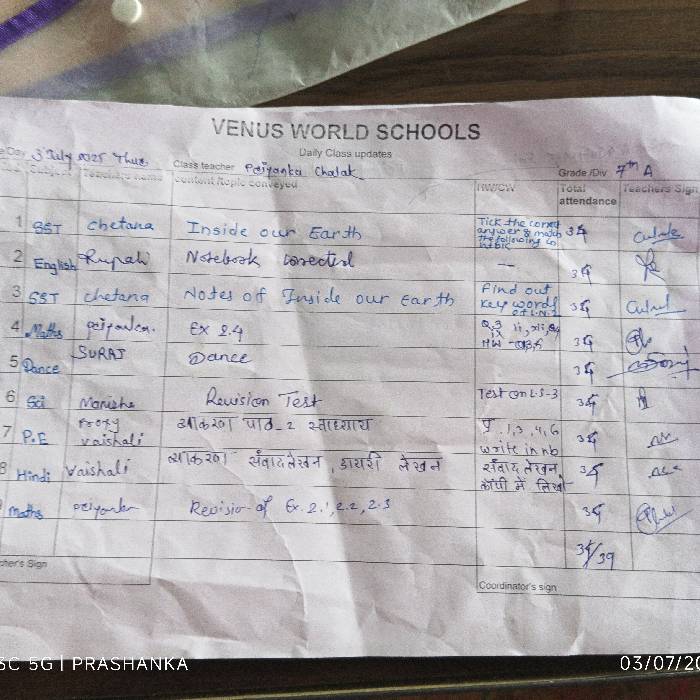 VENUS WORLD SCHOOLS
Daily Class updates
Day 3 July 2025 Thus. Class teacher Priyanka Chalak Grade /Div 7th A
Subject Teachers name content /topic conveyed HW/CW Total attendance Teachers Sign
1 SST chetana Inside our Earth Tick the correct answer & match the following in 34
2 English Rupali Notebook corrected - 34
3 SST chetana Notes of Inside our Earth Find out key words of L.N.2 34
4 Maths priyanka. Ex 2.4 Q.3 ii, xii, ix HW - 34
5 Dance SURAJ Dance 34
6 Sci Manisha Revision Test Test on L.S-3 34
7 P.E Proxy vaishali व्याकरण पाठ-2 स्वाध्याय प्र. 1,3,4,6 write in nb 34
8 Hindi vaishali व्याकरण संवाद लेखन, डायरी लेखन संवाद लेखन कॉपी में लिखो 34
maths priyanka Revision of Ex. 2.1, 2.2, 2.3 34
34/39
Teacher's Sign
Coordinator's sign
5G | PRASHANKA 03/07/20